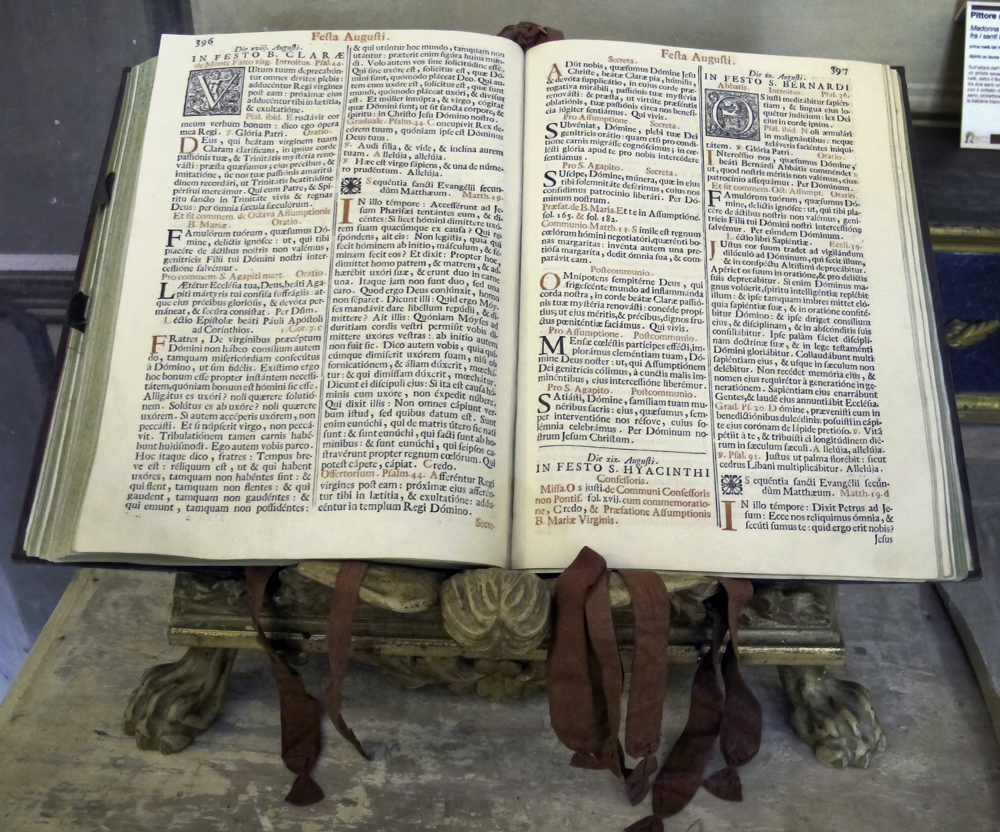 396
Festa Augusti.
Die xviij. Augusti.
IN FESTO B. CLARÆ
de Monte Falco virg. Introitus. Psal. 44.
VUltum tuum deprecabúntur
omnes divites plebis:
adducéntur Regi virgines
post eam: próximæ ejus
adducéntur tibi in lætítia,
& exultatióne.
Psal. ibid. Eructávit cor
meum verbum bonum: dico ego ópera
mea Regi. ℣. Glória Patri. Oratio.
DEus, qui beátam virginem tuam
Claram clarificans, in ipsius corde
passiónis tuæ, & Trinitátis mystéria renovásti:
præsta quæsumus; ejus précibus, &
imitatióne, sic nos tuæ passiónis amaritúdinem
recordári, ut Trinitátis beatitúdine
pérfrui mereámur. Qui cum Patre, & Spiritu
sancto in Trinitáte vivis & regnas
Deus: per ómnia sæcula sæculórum.
Et fit commem. de Octava Assumptionis
B. Mariæ. Oratio.
FAmulórum tuórum, quæsumus Dómine,
delíctis ignósce: ut, qui tibi
placére de áctibus nostris non valémus,
genitrícis Filii tui Dómini nostri intercessióne
salvémur.
Pro commem. S. Agapiti mart. Oratio.
LÆtétur Ecclésia tua, Deus, beáti Agapiti
mártyris tui confísa suffrágiis: atque
ejus précibus gloriósis, & devóta permáneat,
& secúra consístat. Per Dóm.
Léctio Epístolæ beáti Pauli Apóstoli
ad Corinthios. 1. Cor. 7. c
FRatres, De virgínibus præcéptum
Dómini non hábeo: consílium autem
do, tamquam misericórdiam consecútus
à Dómino, ut sim fidélis. Exístimo ergo
hoc bonum esse propter instántem necessitátem,
quóniam bonum est hómini sic esse.
Alligátus es uxóri? noli quærere solutiónem.
Solútus es ab uxóre? noli quærere
uxórem. Si autem accéperis uxórem, non
peccásti. Et si núpserit virgo, non peccávit.
Tribulatiónem tamen carnis habébunt
hujúsmodi. Ego autem vobis parco.
Hoc ítaque dico, fratres: Tempus breve
est: réliquum est, ut & qui habent
uxóres, tamquam non habéntes sint: &
qui flent, tamquam non flentes: & qui
gaudent, tamquam non gaudéntes: &
qui emunt, tamquam non possidéntes:
& qui utúntur hoc mundo, tamquam non
utántur: prǽterit enim figúra hujus mundi.
Volo autem vos sine solicitúdine esse.
Qui sine uxóre est, solícitus est, quæ Dómini
sunt, quómodo pláceat Deo. Qui autem
cum uxóre est, solícitus est, quæ sunt
mundi, quómodo pláceat uxóri, & divísus
est. Et múlier innúpta, & virgo, cógitat
quæ Dómini sunt, ut sit sancta córpore, &
spíritu: in Christo Jesu Dómino nostro.
Graduale. Psalm. 44. Concupívit Rex decórem
tuum, quóniam ipse est Dóminus
Deus tuus.
℣. Audi filia, & vide, & inclína aurem
tuam. Allelúja, allelúja.
℣. Hæc est virgo sápiens, & una de número
prudéntum. Allelúja.
Sequéntia sancti Evangélii secúndum
Matthæum. Matth. 19.
IN illo témpore: Accessérunt ad Jesum
Pharisæi tentántes eum, & dicéntes:
Si licet hómini dimíttere uxórem
suam quacúmque ex causa? Qui respóndens,
ait eis: Non legístis, quia qui
fecit hóminem ab inítio, másculum & féminam
fecit eos? Et dixit: Propter hoc,
dimíttet homo patrem, & matrem, & adhærébit
uxóri suæ, & erunt duo in carne
una. Itaque jam non sunt duo, sed una
caro. Quod ergo Deus conjúnxit, homo
non séparet. Dicunt illi: Quid ergo Móyses
mandávit dare libéllum repúdii, & dimíttere?
Ait illis: Quóniam Móyses ad
durítiam cordis vestri permísit vobis dimíttere
uxóres vestras: ab inítio autem
non fuit sic. Dico autem vobis, quia quicúmque
dimíserit uxórem suam, nisi ob
fornicatiónem, & áliam dúxerit, mœchátur:
& qui dimíssam dúxerit, mœchátur.
Dicunt ei discípuli ejus: Si ita est causa hóminis
cum uxóre, non éxpedit núbere.
Qui dixit illis: Non omnes cápiunt verbum
istud, sed quibus datum est. Sunt
enim eunúchi, qui de matris útero sic nati
sunt: & sunt eunúchi, qui facti sunt ab homínibus:
& sunt eunúchi, qui seípsos castravérunt
propter regnum cœlórum. Qui
potest cápere, cápiat. Credo.
Offertorium. Psalm. 44. Afferéntur Regi
vírgines post eam: próximæ ejus afferéntur
tibi in lætítia, & exultatióne: adducéntur
in templum Regi Dómino.
Secre-
Festa Augusti.
397
Secreta.
ADsit nobis, quæsumus Dómine Jesu
Christe, beátæ Claræ pia, húmilis,
& devóta supplicátio, in cujus corde prærogatíva
mirábili, passiónis tuæ mystéria
renovásti: & præsta; ut virtúte præséntis
oblatiónis, tuæ passiónis circa nos benefícia
júgiter sentiámus. Qui vivis.
Pro Assumptione. Secreta.
SUbvéniat, Dómine, plebi tuæ Dei
genitrícis orátio: quam etsi pro conditióne
carnis migrásse cognóscimus; in cœlésti
glória apud te pro nobis intercédere
sentiámus.
Pro S. Agapito. Secreta.
SUscipe, Dómine, múnera, quæ in ejus
tibi solemnitáte deférimus, cujus nos
confídimus patrocínio liberári. Per Dóminum
nostrum.
Præfat. de B. Maria. Et te in Assumptióne.
fol. 165. & fol. 182.
Communio. Matth. 13. Símile est regnum
cœlórum hómini negotiatóri, quærénti bonas
margarítas: invénta autem una pretiósa
margaríta, dedit ómnia sua, & comparávit
eam.
Postcommunio.
OMnípotens sempitérne Deus, qui
strágem ad mundo ad inflammánda
corda nostra, in corde beátæ Claræ passiónis
tuæ mystéria renovásti: concéde propítius;
ut ejus méritis, & précibus, dignos fructus
pœniténtiæ faciámus. Qui vivis.
Pro Assumptione. Postcommunio.
MEnsæ cœléstis partícipes effécti, implorámus
cleméntiam tuam, Dómine
Deus noster: ut, qui Assumptiónem
Dei genitrícis cólimus, à cunctis malis imminéntibus,
ejus intercessióne liberémur.
Pro S. Agapito. Postcommunio.
SAtiásti, Dómine, famíliam tuam munéribus
sacris: ejus, quæsumus, semper
interventióne nos réfove, cujus solémnia
celebrámus. Per Dóminum nostrum
Jesum Christum.
Die xix. Augusti.
IN FESTO S. HYACINTHI
Confessoris.
Missa. Os justi. de Communi Confessoris
non Pontif. fol. xvij. cum commemoratione,
Credo, & Præfatione Assumptionis
B. Mariæ Virginis.
Die xx. Augusti.
IN FESTO S. BERNARDI
Abbatis. Introitus. Psal. 36.
OS justi meditábitur sapiéntiam,
& lingua ejus loquétur
judícium: lex Dei
ejus in corde ipsíus.
Psal. ibid. Noli æmulári
in malignántibus: neque
zeláveris faciéntes iniquitátem.
℣. Glória Patri. Oratio.
INtercéssio nos, quæsumus Dómine,
beáti Bernárdi Abbátis comméndet:
ut, quod nostris méritis non valémus, ejus
patrocínio assequámur. Per Dóminum.
Et fit commem. Oct. Assumpt. Oratio.
FAmulórum tuórum, quæsumus Dómine,
delíctis ignósce: ut, qui tibi placére
de áctibus nostris non valémus, genitrícis
Fílii tui Dómini nostri intercessióne
salvémur.
Léctio libri Sapiéntiæ. Eccli. 39.
JUstus cor suum tradet ad vigilándum
dilúculo ad Dóminum, qui fecit illum,
& in conspéctu Altíssimi deprecábitur.
Apériet os suum in oratióne, & pro delíctis
suis deprecábitur. Si enim Dóminus magnus
volúerit, spíritu intelligéntiæ replébit
illum: & ipse tamquam imbres mittet elóquia
sapiéntiæ suæ, & in oratióne confitébitur
Dómino: & ipse díriget consílium
ejus, & disciplínam, & in abscónditis suis
consiliábitur. Ipse palam fáciet disciplínam
doctrínæ suæ, & in lege testaménti
Dómini gloriábitur. Collaudábunt multi
sapiéntiam ejus, & usque in sæculum non
delébitur. Non recédet memória ejus, &
nomen ejus requirétur à generatióne in generatiónem.
Sapiéntiam ejus enarrábunt
Gentes, & laudem ejus annuntiábit Ecclésia.
Grad. Ps. 20. Dómine, prævenísti eum in
benedictiónibus dulcédinis: posuísti in cápite
ejus corónam de lápide pretióso. ℣. Vitam
pétiit à te, & tribuísti ei longitúdinem diérum
in sæculum sæculi. Allelúja, allelúja.
℣. Ps. 91. Justus ut palma florébit: sicut
cedrus Líbani multiplicábitur. Allelúja.
Sequéntia sancti Evangélii secúndum
Matthæum. Matth. 19. d
IN illo témpore: Dixit Petrus ad Jesum:
Ecce nos relíquimus ómnia, &
secúti sumus te: quid ergo erit nobis?
Jesus
Pittore
Madonna
fra i santi